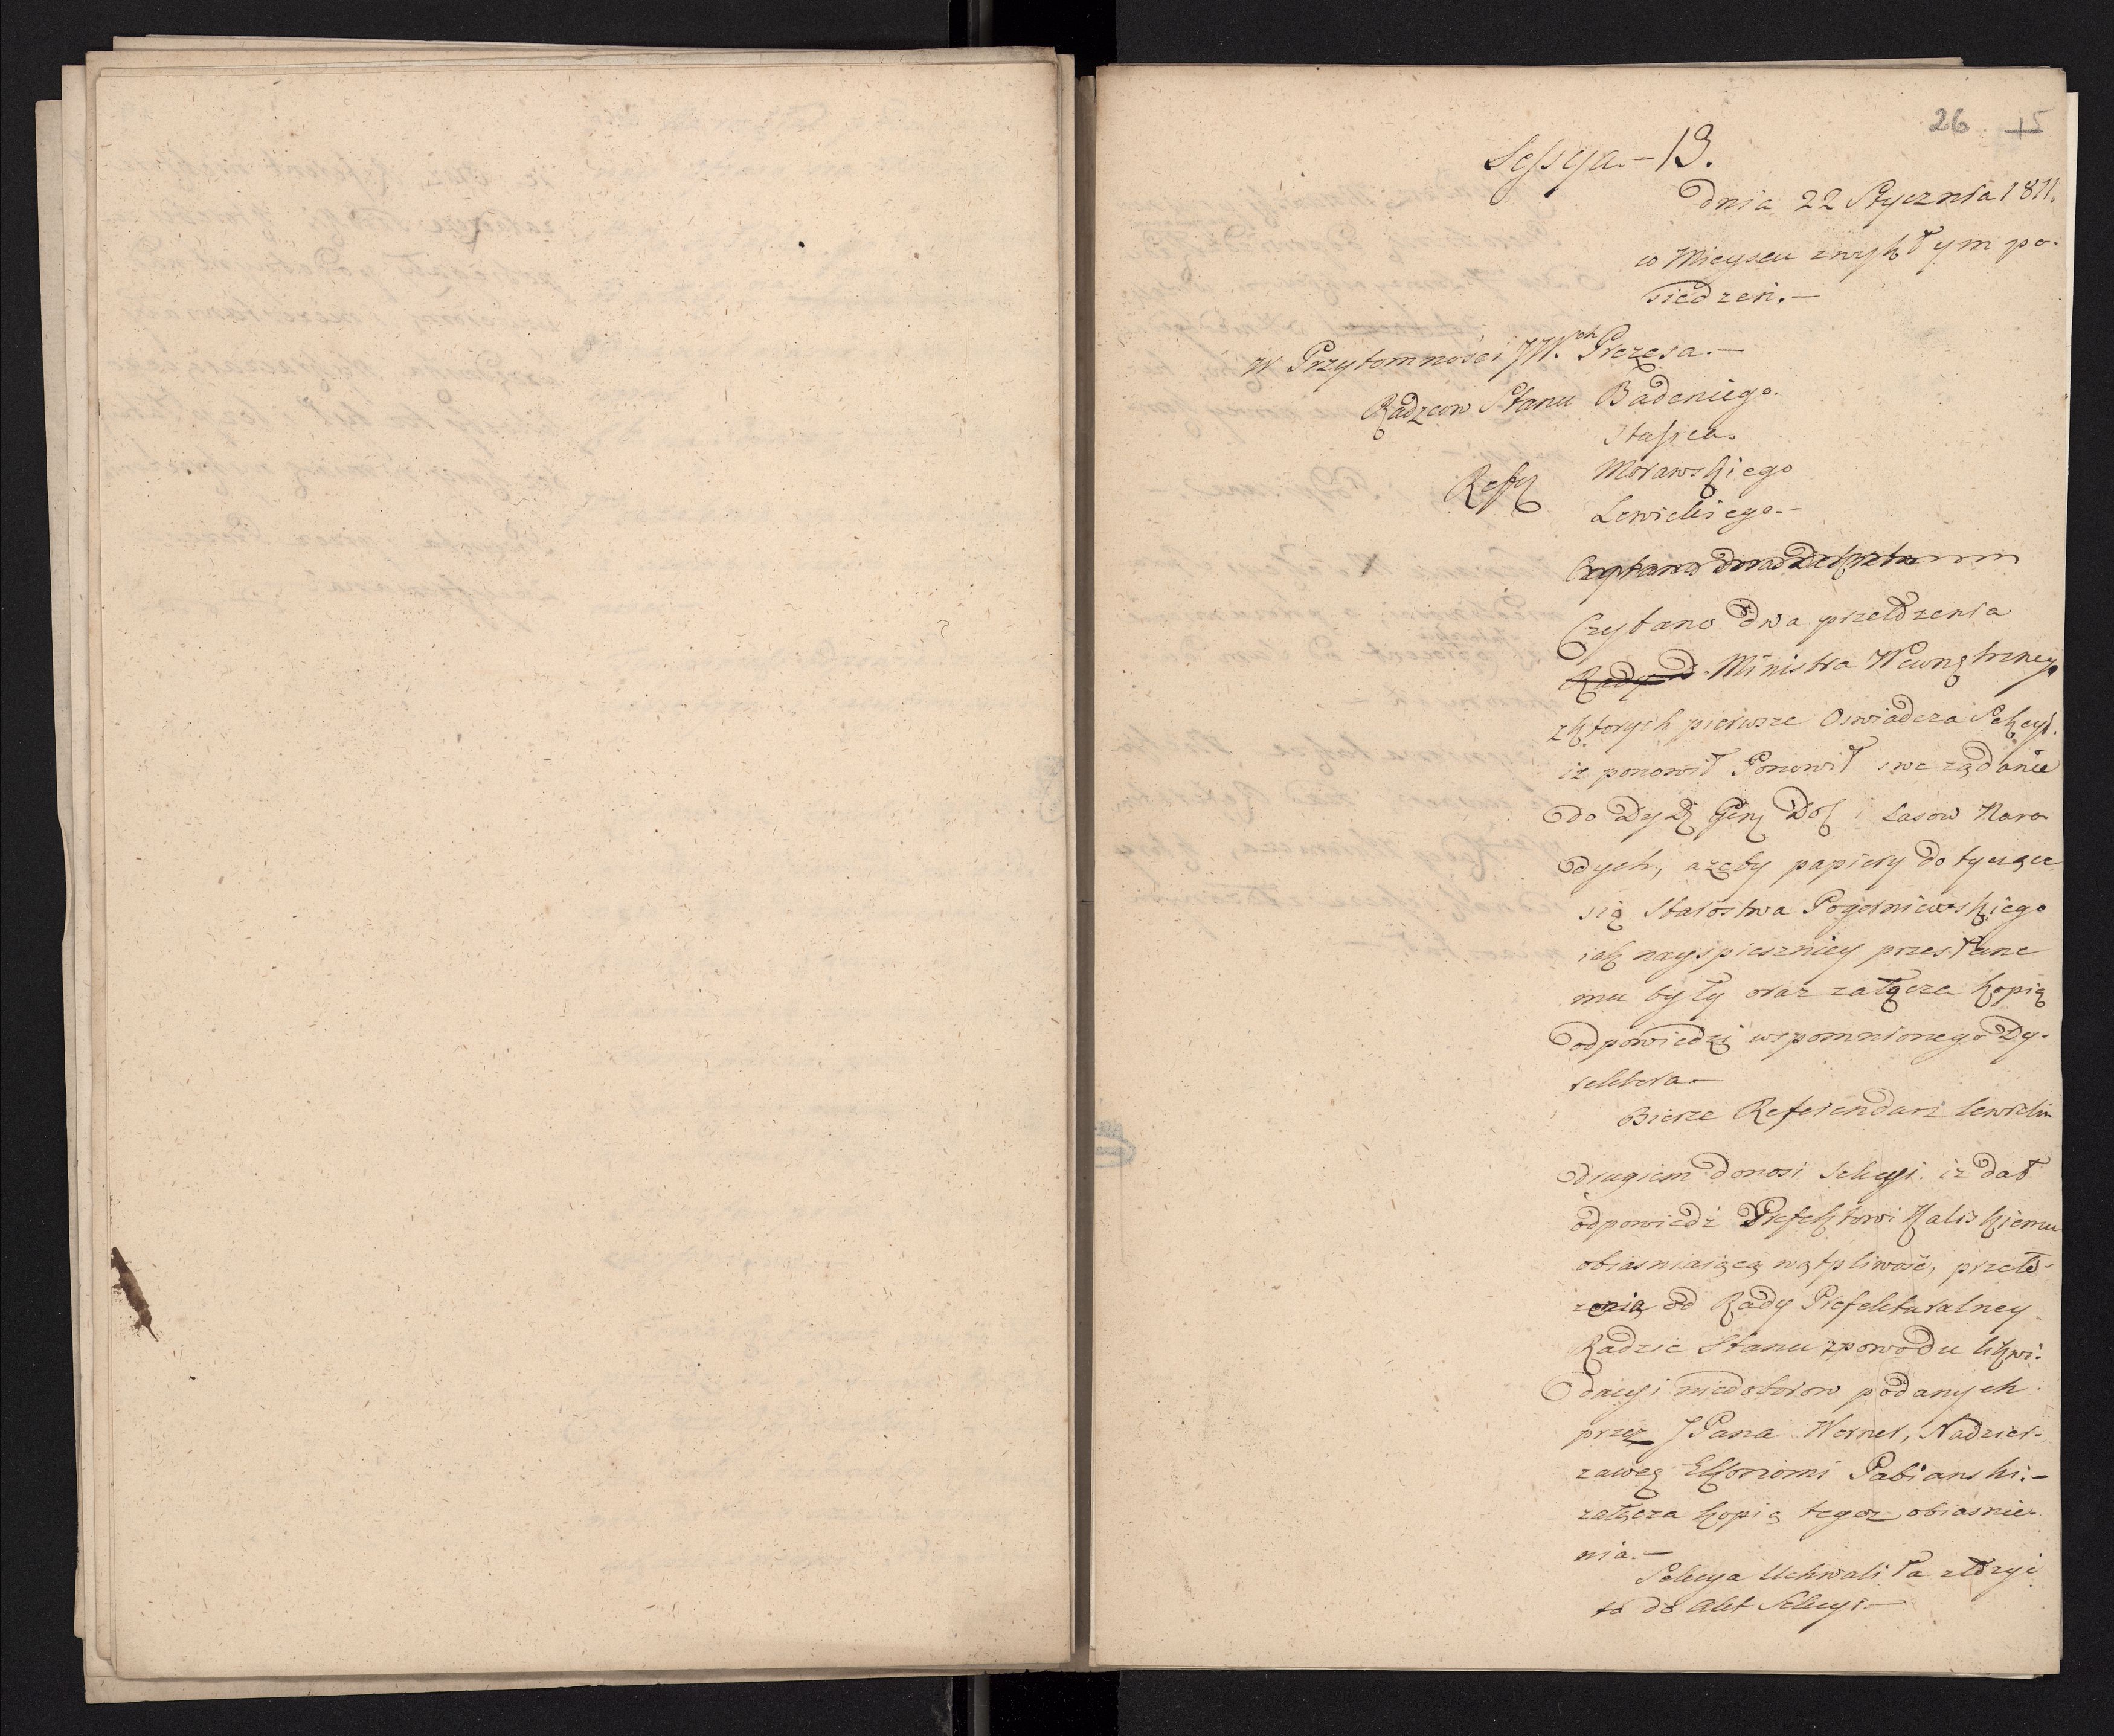 26 15
Sessya. – 13.
Dnia 22 Stycznia 1811.
w Mieyscu zwykłym po-
siedzeń. –
w Przytomności JW.ch Prezesa. –
Radzcow Stanu Badeniego.
Staszica.
Morawskiego
Reffr
Lewickiego. –
Czytano dwa
Czytano dwa przełożenia
Rady Ministra Wewnętrznego
zktorych pierwsze Oswiadcza Sekcyi.
iz ponowił Ponowił swe ządanie
do Dyr Gen Dob i Lasow Naro
dych, azeby papiery dotyczące
się Starostwa Pogorniewskiego
iak nayspieszniey przesłane
mu były oraz załącza kopią
odpowiedzi wspomnionego Dy-
rektora –
Bierze Referendarz Lewicki
drugiem donosi Sekcyi. iz dał
odpowiedź Prefektowi Kaliskiemu
obiasniaiącą wątpliwość, przeło-
zenia od Rady Prefekturalney
Radzie Stanu zpowodu likwi-
dacyi niedoborow podanych
przez JPana Werner, Nadzier-
zawcę Ekonomi Pabianski. –
załącza kopią tegoz obiasnie-
nia. –
Sekcya Uchwaliła złozyć
to do Akt Sekcyi –